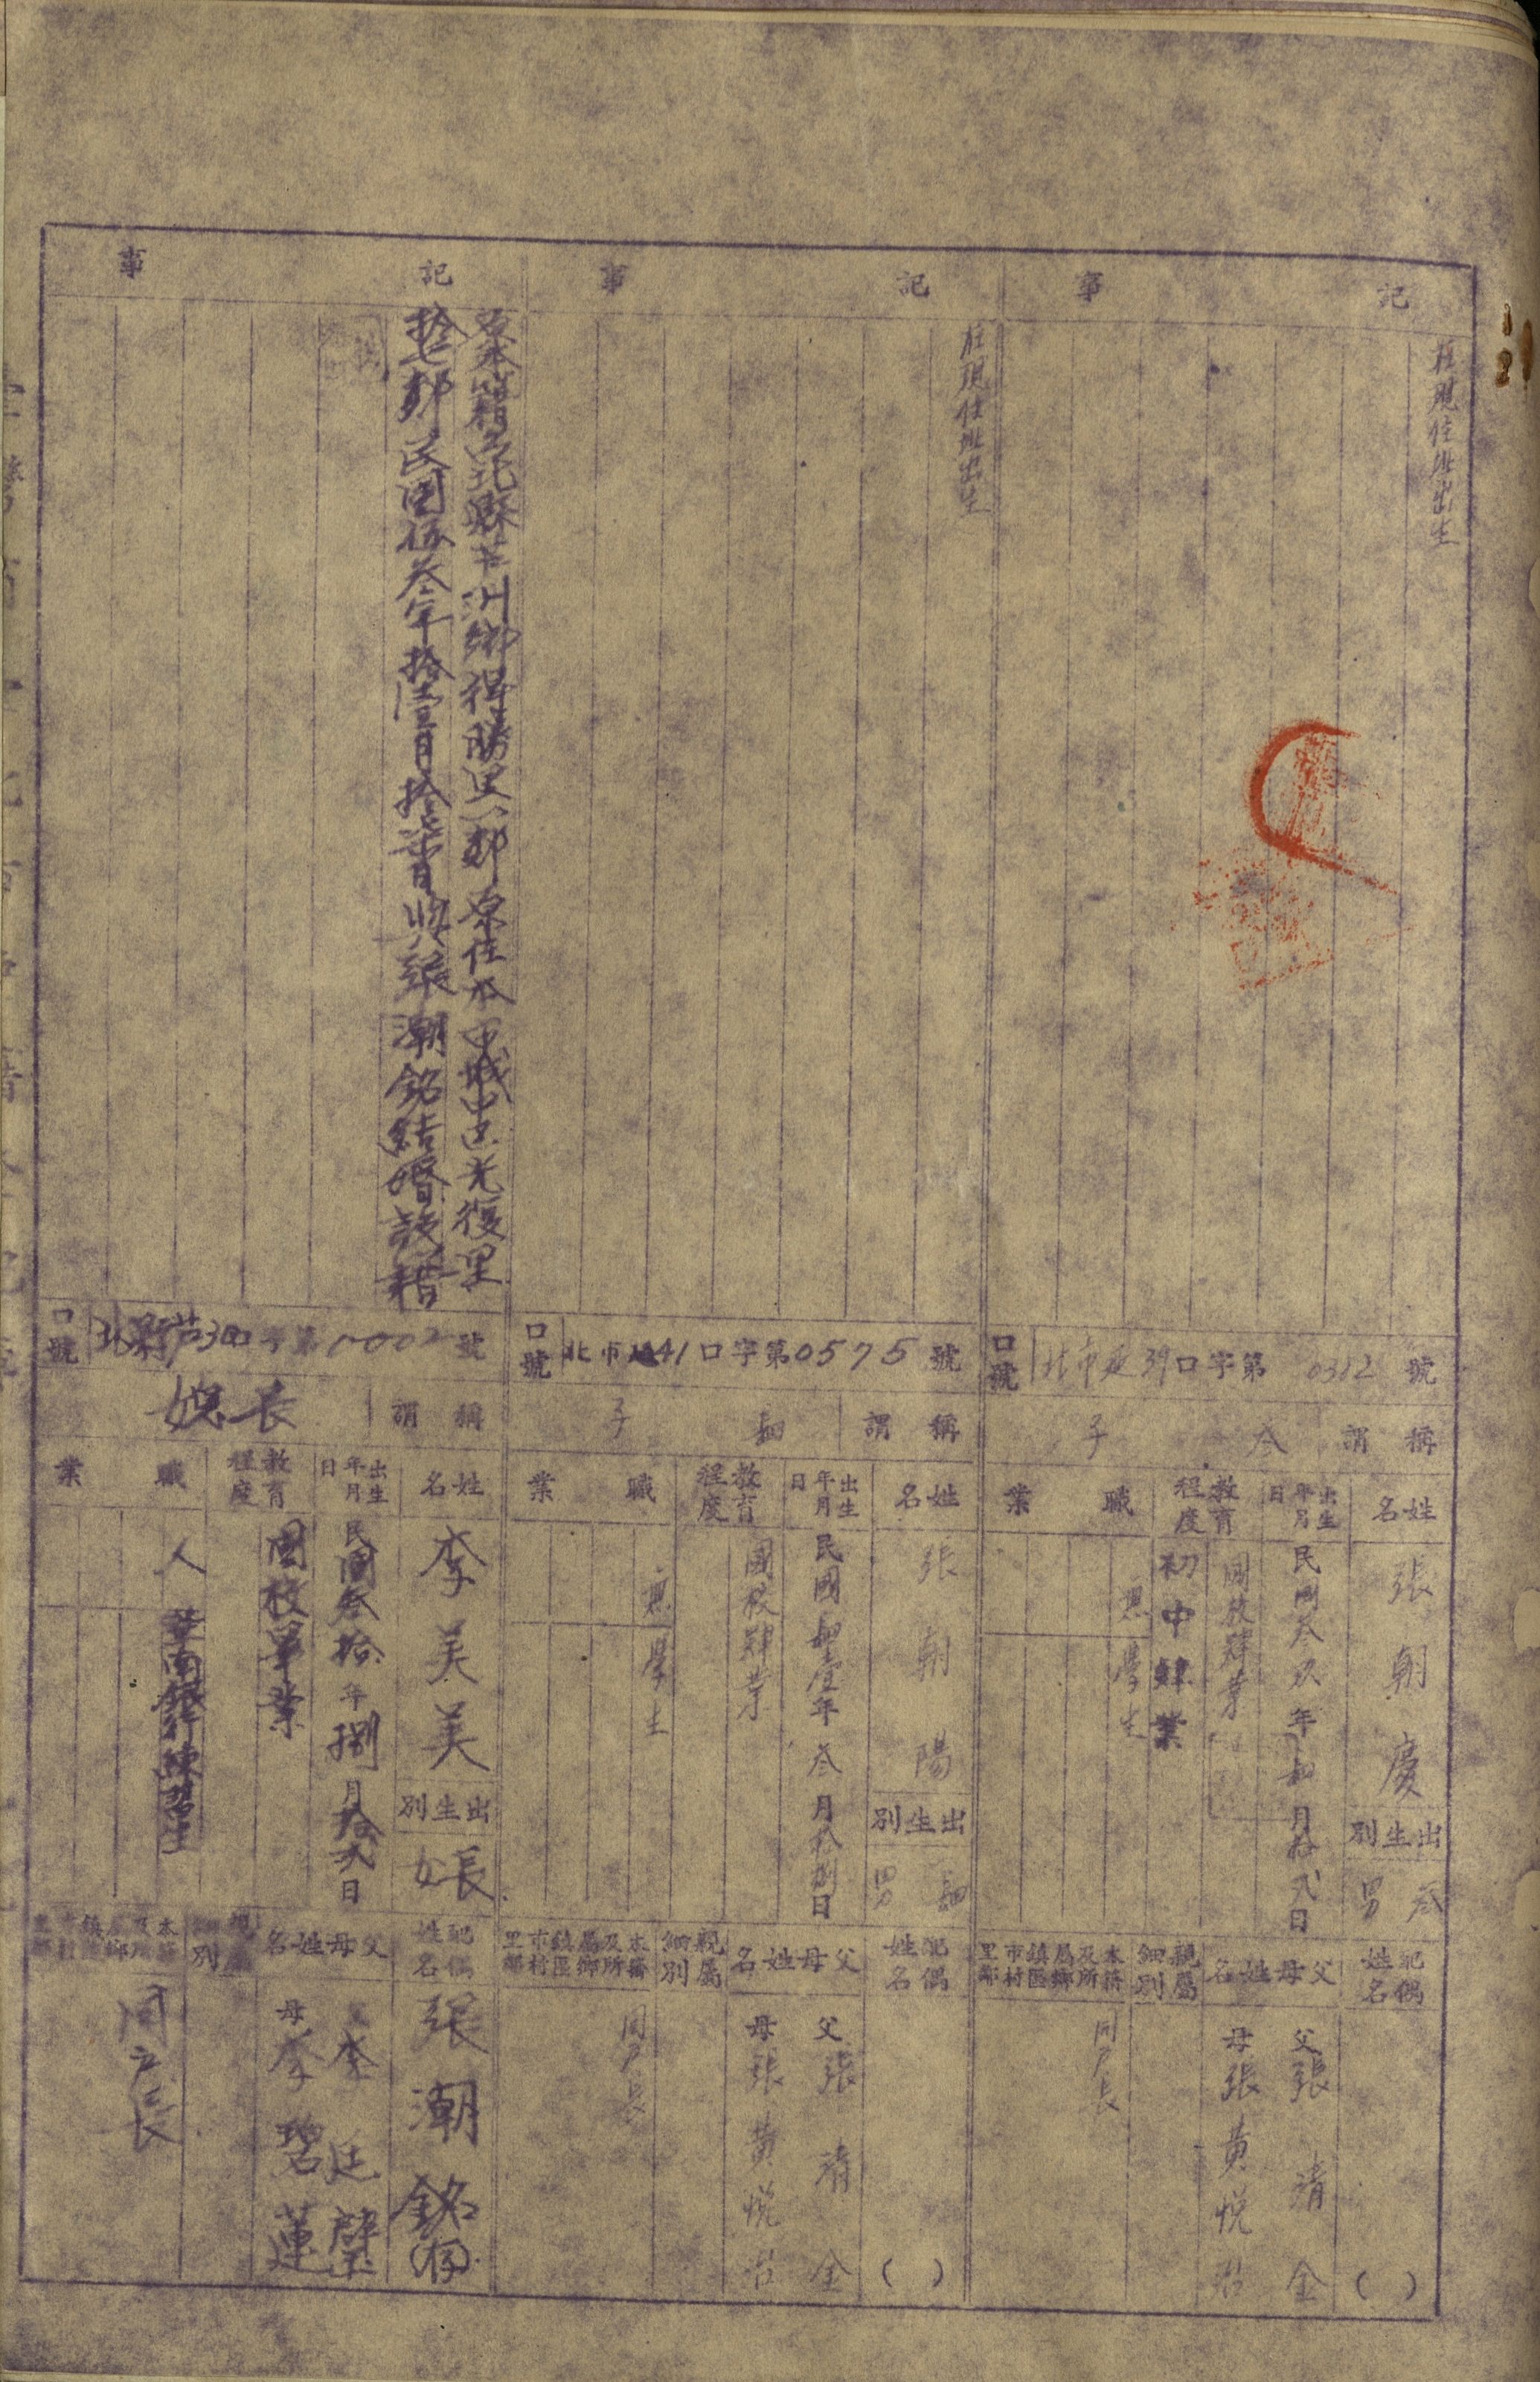 記事
在現住址出生
口號 北市延39口字第0312號
稱謂 叁子
姓名 張朝慶
出生年月日 民國叁玖年肆月拾貳日
教育程度 國校肄業
初中肄業
職業 學生
出生別 叁男
配偶姓名 ( )
父母姓名 父張清金
母張黃悅治
親屬細別
本籍及所屬鄉鎮區市村里鄰 同戶長
記事
在現住址出生
口號 北市延41口字第0575號
稱謂 肆子
姓名 張朝陽
出生年月日 民國肆壹年叁月拾捌日
教育程度 國校肄業
職業 學生
出生別 肆男
配偶姓名 ( )
父母姓名 父張清金
母張黃悅治
親屬細別
本籍及所屬鄉鎮區市村里鄰 同戶長
記事
原本籍台北縣芦洲鄉得勝里八鄰原住本市城中区光復里
拾七鄰民國伍叁年拾壹月拾柒日與張潮銘結婚設籍
口號 北縣芦30口字第0002號
稱謂 長媳
姓名 李美美
出生年月日 民國叁拾年捌月拾貳日
教育程度 國校畢業
職業 華南銀行練習生
人
出生別 長女
配偶姓名 張潮銘(存)
父母姓名 父李廷鑒
母李碧蓮
本籍及所屬鄉鎮區市村里鄰 同戶長